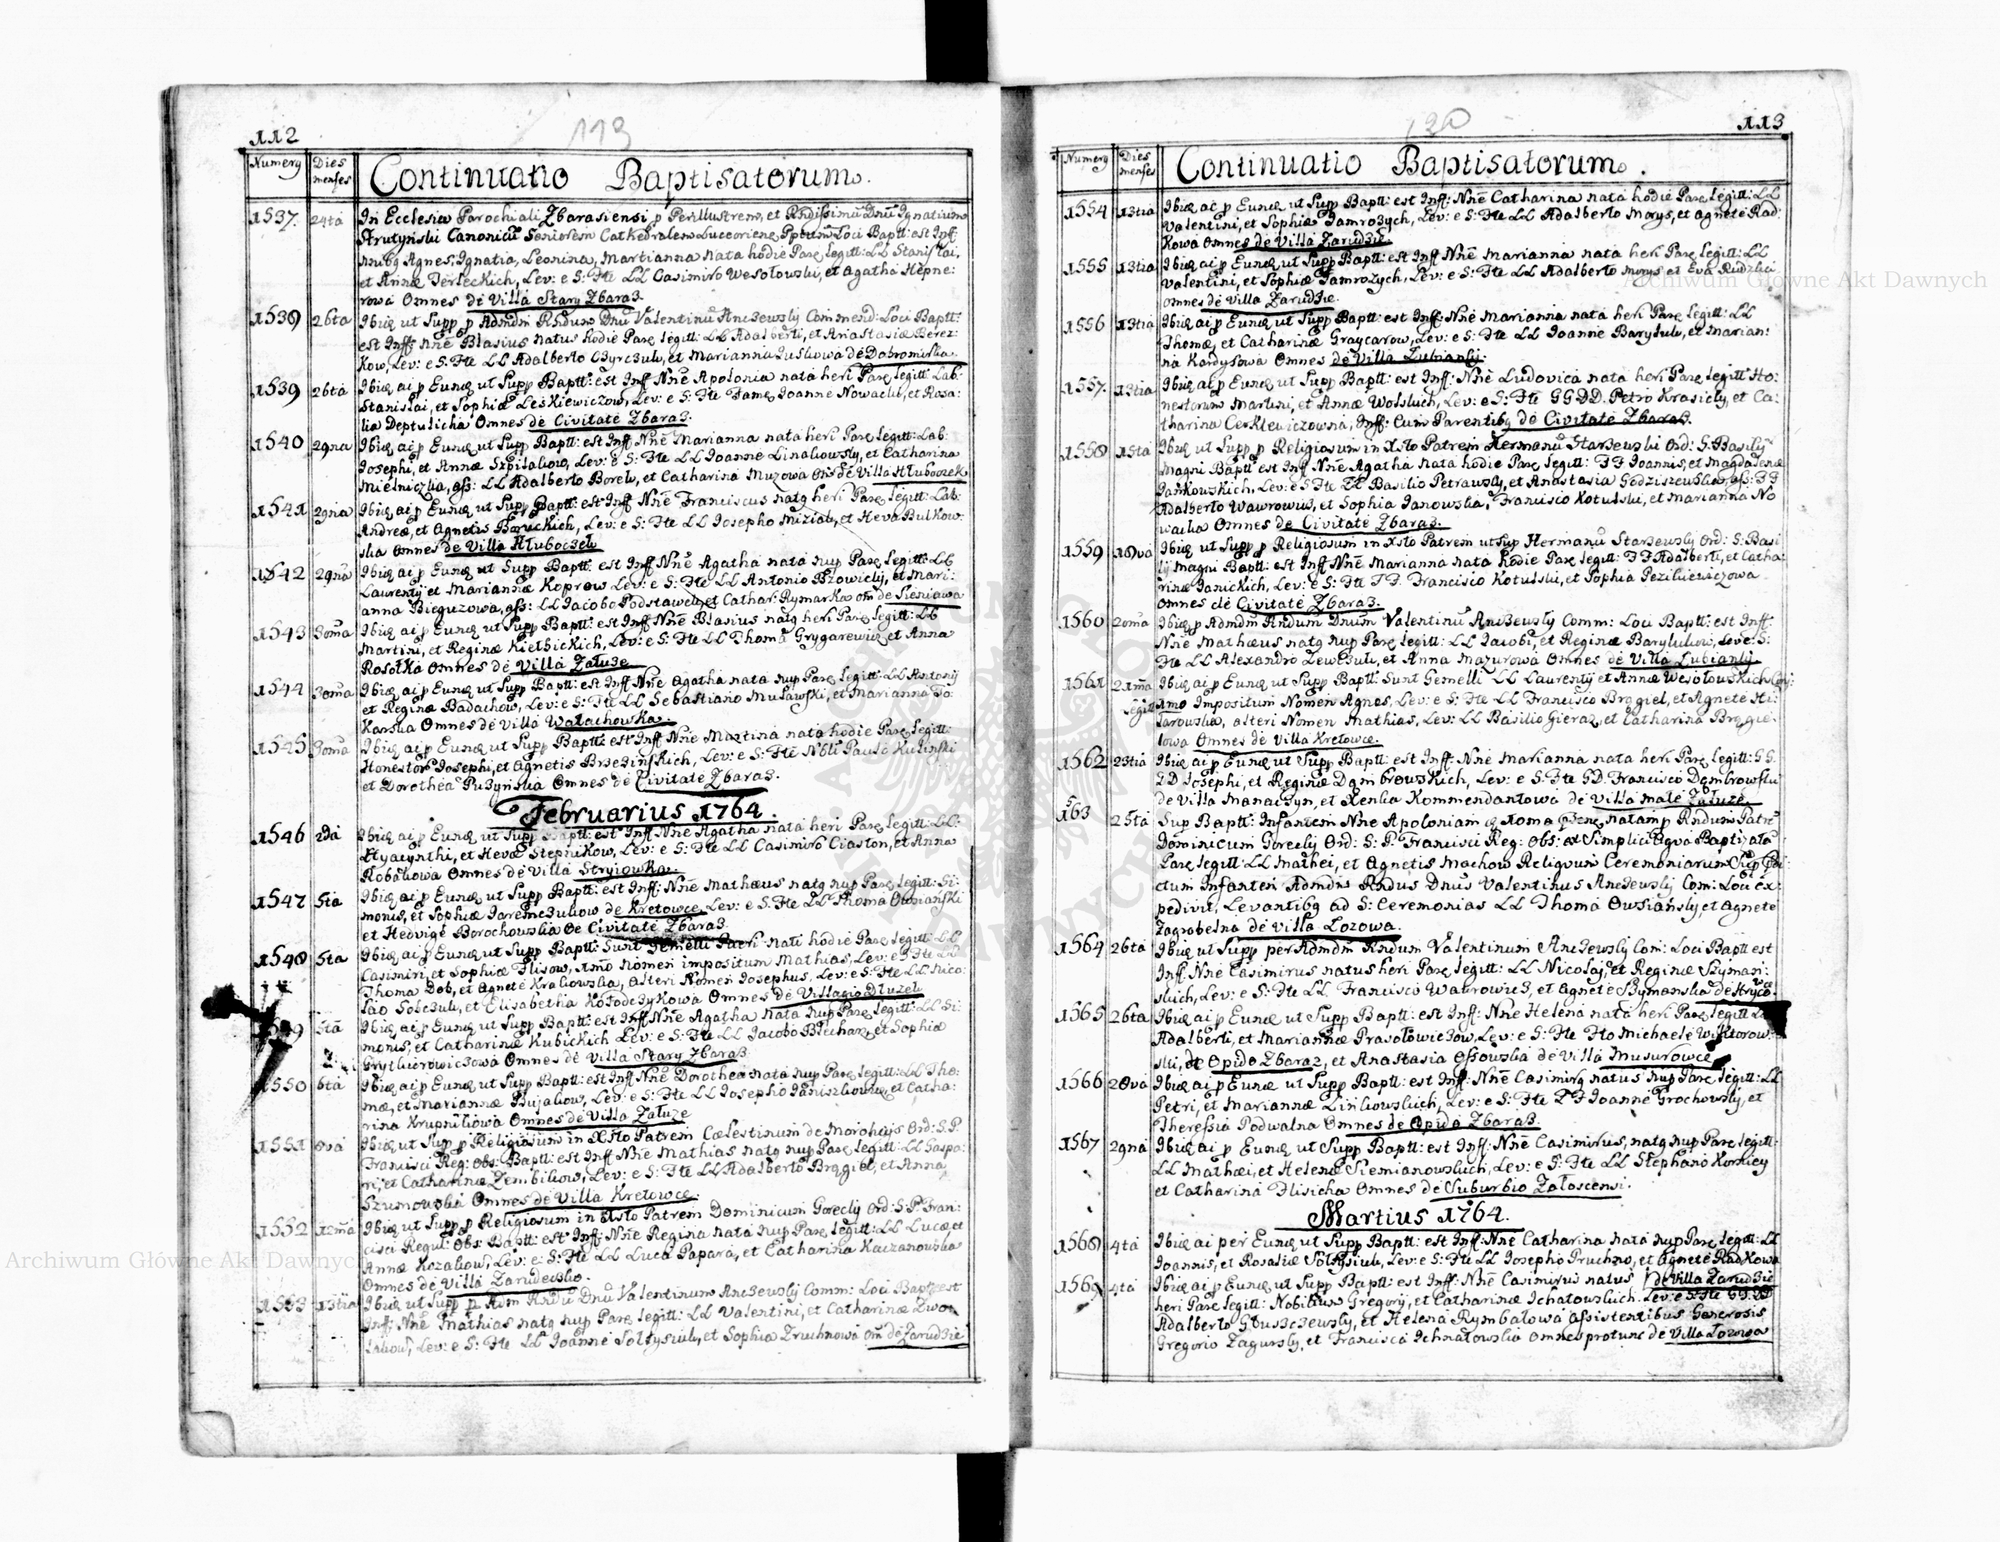 112
113
Numerq
Dies
menses
Continuatio Baptisatorum.
1537. 24ta In Ecclesia Parochiali Zbarasiensi p Perillustrem, et Rndissimū Dnū Ignatium
Strutyński Canonicū Seniorem Cathedralem Luceoriens, Pptum Loci Baptt: est Inff
nnibq Agnes, Ignatia, Leonina, Martianna nata hodie Parē legitt: LL Stanislai,
et Annæ Terleckich, Lev: e S: Fte LL Casimiro Wesołowski, et Agatha Hepne:
rowa Omnes de Villa Stary Zbaraz.
1538 26ta Ibid ut Supp p Admdm Rndum Dnū Valentinū Anczewsky Commend: Loci Baptt:
est Inff: Nnē Blasius natus hodie Parē legitt: LL Adalberti, et Anastasiæ Berez:
Kow, Lev: e S: Fte LL Adalberto Czyrczuk, et Marianna Juskowa de Dobromirka
1539 26ta Ibid ai p Eund ut Supp Baptt: est Inff Nnē Apolonia nata heri Parē legitt: Lab:
Stanislai, et Sophiæ Leskiewiczow, Lev: e S: Fte Fame Joanne Nowacki, et Rosa:
lia Deptulicha Omnes de Civitate Zbaraz.
1540 29na Ibid ai p Eund ut Supp Baptt: est Inff Nnē Marianna nata heri Parē legitt: Lab:
Josephi, et Annæ Szpilakow, Lev: e S: Fte LL Joanne Linakowsky, et Catharina
Mielniczka, ass: LL Adalberto Borek, et Catharina Muzowa Om̄ de Villa Hłuboczek
1541 29na Ibid ai p Eund ut Supp Baptt: est Inff Nnē Franciscus natq heri Parē legitt: Lab:
Andreæ, et Agnetis Boruckich, Lev: e S: Fte LL Josepho Miziak, et Heva Bulkow:
ska Omnes de Villa Hłuboczek
1542 29na Ibid ai p Eund ut Supp Baptt: est Inff Nnē Agatha nata nup Parē legitt: LL
Laurenty et Mariannæ Koprow Lev: e S: Fte LL Antonio Bzowicky, et Mari:
anna Bieguzowa, ass: LL Jacobo Podstawek, et Cathar: Rymarka om̄ de Sieniawa
1543 30ma Ibid ai p Eund ut Supp Baptt: est Inff Nnē Blasius natq heri Parē legitt: LL
Martini, et Reginæ Kiełbickich, Lev: e S: Fte LL Thoma Grygarewicz, et Anna
Rosołka Omnes de Villa Załuze
1544 30ma Ibid ai p Eund ut Supp Baptt: est Inff Nnē Agatha nata nup Parē legitt: LL Antonij
et Reginæ Badachow, Lev: e S: Fte LL Sebastiano Muławski, et Marianna To:
karska Omnes de Villa Wałachowka.
1545 30ma Ibid ai p Eund ut Supp Baptt: est Inff Nnē Martina nata hodie Parē legitt:
Honestor Josephi, et Agnetis Brzezinskich, Lev: e S: Fte Nbli Paulo Kuzinski
et Dorothea Puzynska Omnes de Civitate Zbaraz.
Februarius 1764.
1546 2da Ibid ai p Eund ut Supp Baptt: est Inff Nnē Agatha nata heri Parē legitt: LL:
Hyacynthi, et Hevæ Stepnikow, Lev: e S: Fte LL Casimiro Ciaston, et Anna
Robakowa Omnes de Villa Stryiowka.
1547 5ta Ibid ai p Eund ut Supp Baptt: est Inff: Nnē Mathæus natq nup Parē legitt: Si:
monis, et Sophiæ Jaremczukow de Kretowce, Lev: e S: Fte LL Thoma Owsianski
et Hedvige Borochowska de Civitate Zbaraz.
1548 5ta Ibid ai p Eund ut Supp Baptt: Sunt Gemelli Pueri nati hodie Parē legitt: LL
Casimiri, et Sophiæ Flisow, 1mo nomen impositum Mathias, Lev: e S: Fte LL
Thoma Dob, et Agnete Krakowska, Alteri Nomen Josephus, Lev: e S: Fte LL Nico:
lao Solczuk, et Elisabetha Kołodczykowa Omnes de Villa
5ta Ibid ai p Eund ut Supp Baptt: est Inff Nnē Agatha nata nup Parē legitt: LL Si:
monis, et Catharinæ Kubickich Lev: e S: Fte LL Jacobo Blechar, et Sophia
Omnes de Villa Stary Zbaraz
1550 6ta Ibid ai p Eund ut Supp Baptt: est Inff Nnē Dorothea nata nup Parē legitt: LL Tho:
mæ, et Mariannæ Bujakow, Lev: e S: Fte LL Josepho Janiszkiowicz, et Catha:
rina Krupnikowa Omnes de Villa Załuze
1551 8va Ibid ut Supp p Religiosum in Xsto Patrem Cælestinum de Morohays Ord: S: P.
Francisci Reg: Obs: Baptt: est Inff Nnē Mathias natq nup Parē legitt: LL Gaspa:
ri, et Catharinæ Zembikow, Lev: e S: Fte LL Adalberto Brągiel, et Anna
Szumowska Omnes de Villa Kretowce.
1552 12ma Ibid ut Supp p Religiosum in Xsto Patrem Dominicum Gorecky Ord: S: P. Fran:
cisci Regul: Obs: Baptt: est Inff: Nnē Regina nata nup Parē legitt: LL Lucæ, et
Annæ Kozakow, Lev: e S: Fte LL Luca Papara, et Catharina Kaczanowska
Omnes de Villa Zarudecko.
1553 13tia Ibid ut Supp p Adm Rndū Dnū Valentinum Anczewsky Comm: Loci Baptt est
Inff: Nnē Mathias natq nup Parē legitt: LL Valentini, et Catharinæ Zwon
kow, Lev: e S: Fte LL Joanne Sołtysiuk, et Sophia Zruchnowa om̄ de Zarudzie
113
Numerq
Dies
menses
Continuatio Baptisatorum.
1554 13tia Ibid ai p Eund ut Supp Baptt: est Inff: Nnē Catharina nata hodie Parē legitt: LL
Valentini, et Sophiæ Jamrozych, Lev: e S: Fte LL Adalberto Morys, et Agnete Rad:
kowa Omnes de Villa Zarudzie
1555 13tia Ibid ai p Eund ut Supp Baptt: est Inff Nnē Marianna nata heri Parē legitt: LL
Valentini, et Sophiæ Jamrozych, Lev: e S: Fte LL Adalberto Morys et Eva Rudzka
Omnes de Villa Zarudzie.
1556 13tia Ibid ai p Eund ut Supp Baptt: est Inff: Nnē Marianna nata heri Parē legitt: LL
Thomæ, et Catharinæ Graycarow, Lev: e S: Fte LL Joanne Barysiuk, et Marian:
na Kardysowa Omnes de Villa Lubianky.
1557. 13tia Ibid ai p Eund ut Supp Baptt: est Inff: Nnē Ludovica nata heri Parē legitt Ho:
nestorum Martini, et Annæ Wolskich, Lev: e S: Fte GG.DD. Petro Krasicky, et Ca:
tharina Cerklewiczowna, Inff: Cum Parentibq de Civitate Zbaraz.
1558 15ta Ibid ut Supp p Religiosum in Xsto Patrem Hermanū Starzewski Ord: S: Basily
Magni Baptt est Inff Nnē Agatha nata hodie Parē legitt: FF Joannis, et Magdalenæ
Jankowskich, Lev: e S: Fte LL Basilio Petrawsky, et Anastasia Godziszewska, ass: FF
Adalberto Wawrowicz, et Sophia Janowska, Francisco Kotulski, et Marianna No
wacka Omnes de Civitate Zbaraz.
1559 18va Ibid ut Supp p Religiosum in Xsto Patrem ut Sup Hermanū Starzewsky Ord: S: Basi
ly Magni Baptt: est Inff Nnē Marianna nata hodie Parē legitt: FF Adalberti, et Catha:
rinæ Janickich, Lev: e S: Fte FF. Francisco Kotulski, et Sophia
Omnes de Civitate Zbaraz.
1560 20ma Ibid p Admdm Rndum Dnum Valentinū Anczewsky Comm: Loci Baptt: est Inff:
Nnē Mathæus natq nup Parē legitt: LL Jacobi, et Reginæ Barylukow, Lev: e S:
Fte LL Alexandro Lewczuk, et Anna Mazurowa Omnes de Villa Lubianky
1561 21ma Ibid ai p Eund ut Supp Baptt: Sunt Gemelli LL Laurenty et Annæ Wesołowskich Conj:
legitt 1mo Impositum Nomen Agnes, Lev: e S: Fte LL Francisco Brągiel, et Agnete Hi:
larowska, alteri Nomen Mathias, Lev: LL Basilio Gieraz, et Catharina Brągie:
lowa Omnes de Villa Kretowce.
1562 23tia Ibid ai p Eund ut Supp Baptt: est Inff: Nnē Marianna nata heri Parē legitt: GG.
DD Josephi, et Reginæ Dąmbrowskich, Lev: e S: Fte GD. Francisco Dąmbrowski
de Villa Manaczyn, et Xenka Kommendantowa de Villa małe Załuze
1563 25ta Sup Baptt: Infantem Nnē Apoloniam natam p Rndum Patrē
Dominicum Gorecky Ord: S: P. Francisci Reg: Obs: ex Simplici Aqva Baptizata
Parē legitt: LL Mathei, et Agnetis Machow Religvum Ceremoniarum
ctum Infantem Admdūs Rndus Dnūs Valentinus Anczewsky Com: Loci ex:
pedivit, Levantibq ad S: Ceremonias LL Thoma Owsiansky, et Agnete
Zagrobelna de Villa Łozowa.
1564 26ta Ibid ut Supp per Admdm Rndum Valentinum Anczewsky Com: Loci Baptt est
Inff: Nnē Casimirus natus heri Parē legitt: LL Nicolai, et Reginæ Szyman:
skich, Lev: e S: Fte LL Francisco Wawrowicz, et Agnete Szymanska de
1565 26ta Ibid ai p Eund ut Supp Baptt: est Inff: Nnē Helena nata heri Parē legitt
Adalberti, et Mariannæ Prasołowiczow, Lev: e S: Fte Fto Michaele Wiktorow:
ski, de Opido Zbaraz, et Anastasia Ossowska de Villa Musurowce
1566 28va Ibid ai p Eund ut Supp Baptt: est Inff: Nnē Casimirq natus nup Parē legitt: LL
Petri, et Mariannæ Linkowskich, Lev: e S: Fte FF Joanne Grochowsky, et
Theressia Podwalna Omnes de Opido Zbaraz.
1567 29na Ibid ai p Eund ut Supp Baptt: est Inff: Nnē Casimirus, natq nup Parē legitt:
LL Mathæi, et Helenæ Siemianowskich, Lev: e S: Fte LL Stephano Kornicy
et Catharina Flisicha Omnes de Suburbio Załoscensi.
Martius 1764.
1568 4ta Ibid ai per Eund ut Supp Baptt: est Inff: Nnē Catharina nata nup Parē legitt: LL
Joannis, et Rosaliæ Sołtysiuk, Lev: e S: Fte LL Josepho Pruchno, et Agnete Radkowa
de Villa Zarudzie
1569 4ta Ibid ai p Eund ut Supp Baptt: est Inff: Nnē Casimirus natus
heri Parē legitt: Nobilium Gregorij, et Catharinæ Ichatowskich Lev: e S: Fte GG. DD
Adalberto Głuszczewsky, et Helena Rymbałowa Assistentibus Generosis
Gregorio Zagursky, et Francisca Ichnatowska Omnes protunc de Villa Łozowa
Archiwum Główne Akt Dawnych
Archiwum Główne Akt Dawnych